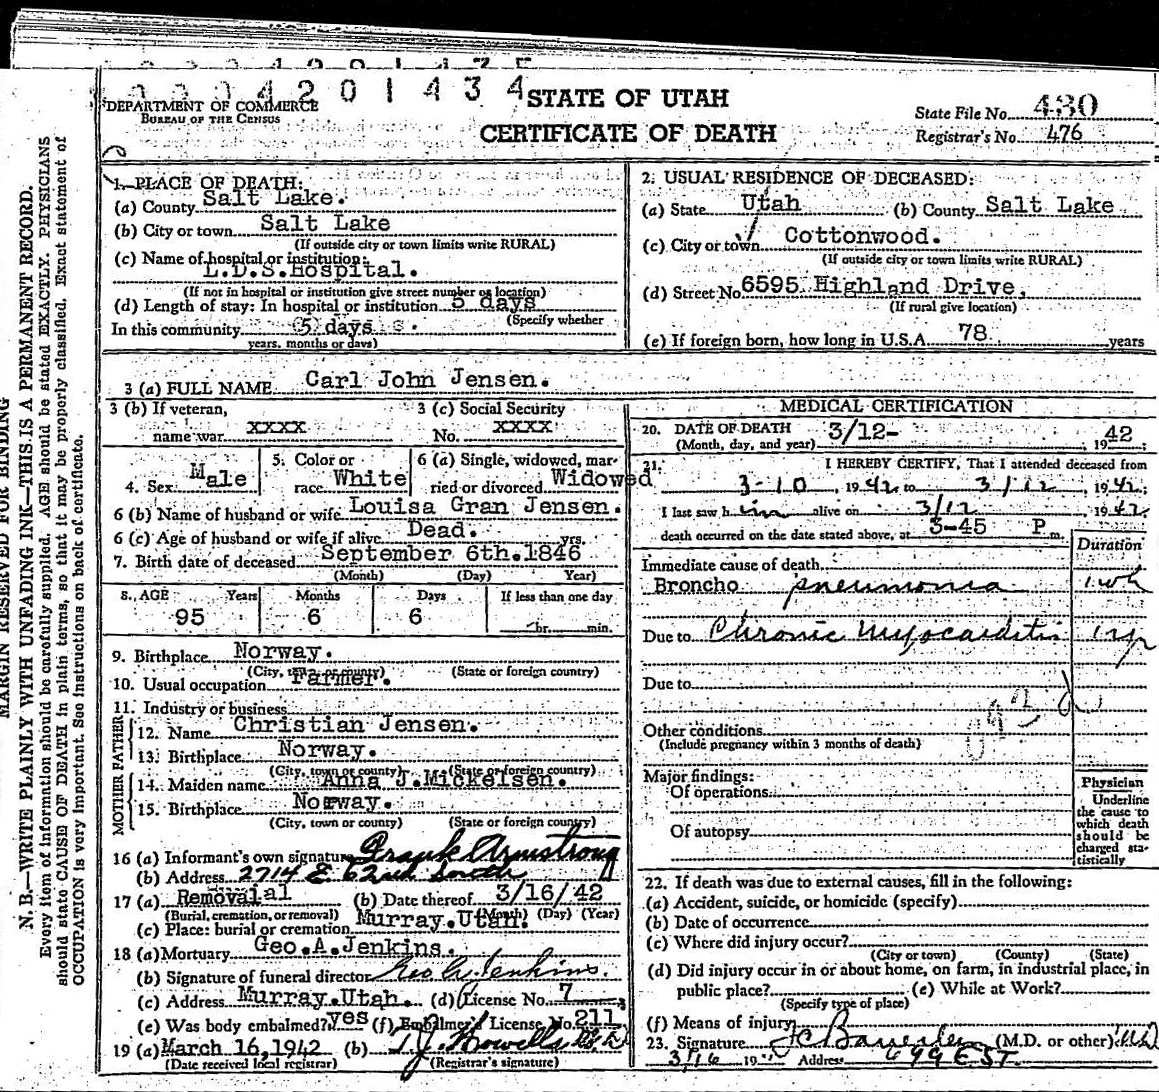 0 0 0 4 2 0 1 4 3 4
DEPARTMENT OF COMMERCE
BUREAU OF THE CENSUS
STATE OF UTAH
CERTIFICATE OF DEATH
State File No. 430
Registrar's No. 476
MARGIN RESERVED FOR BINDING
N. B.—WRITE PLAINLY WITH UNFADING INK—THIS IS A PERMANENT RECORD.
Every item of information should be carefully supplied. AGE should be stated EXACTLY. PHYSICIANS
should state CAUSE OF DEATH in plain terms, so that it may be properly classified. Exact statement of
OCCUPATION is very important. See instructions on back of certificate.
1. PLACE OF DEATH:
(a) County Salt Lake.
(b) City or town Salt Lake
(If outside city or town limits write RURAL)
(c) Name of hospital or institution:
L.D.S.Hospital.
(If not in hospital or institution give street number or location)
(d) Length of stay: In hospital or institution 5 days
(Specify whether
In this community 5 days
years, months or days)
2. USUAL RESIDENCE OF DECEASED:
(a) State Utah (b) County Salt Lake
(c) City or town Cottonwood.
(If outside city or town limits write RURAL)
(d) Street No 6595 Highland Drive,
(If rural give location)
(e) If foreign born, how long in U.S.A. 78 years
3 (a) FULL NAME Carl John Jensen.
3 (b) If veteran, 3 (c) Social Security
name war XXXX No. XXXX
4. Sex Male 5. Color or race White 6 (a) Single, widowed, married or divorced Widowed
6 (b) Name of husband or wife Louisa Gran Jensen.
6 (c) Age of husband or wife if alive Dead. yrs.
7. Birth date of deceased September 6th.1846
(Month) (Day) Year)
8. AGE Years Months Days If less than one day
95 6 6 hr. min.
9. Birthplace Norway.
(City, town or county) (State or foreign country)
10. Usual occupation Farmer.
11. Industry or business
FATHER
12. Name Christian Jensen.
13. Birthplace Norway.
(City, town or county) (State or foreign country)
MOTHER
14. Maiden name Anna J.Mickelsen.
15. Birthplace Norway.
(City, town or county) (State or foreign country)
16 (a) Informant's own signature Frank Armstrong
(b) Address 2714 E 62nd South
17 (a) Removal (b) Date thereof 3/16/42
(Burial, cremation, or removal) (Month) (Day) (Year)
(c) Place: burial or cremation Murray.Utah.
18 (a) Mortuary Geo.A.Jenkins.
(b) Signature of funeral director Geo A Jenkins.
(c) Address Murray.Utah. (d) License No. 7
(e) Was body embalmed? yes (f) Embalmer's License No. 211
19 (a) March 16,1942 (b) T.J. Howells
(Date received local registrar) (Registrar's signature)
MEDICAL CERTIFICATION
20. DATE OF DEATH 3/12- 1942
(Month, day, and year)
21. I HEREBY CERTIFY, That I attended deceased from
3-10, 1942 to 3/12, 1942;
I last saw him alive on 3/12, 1942.
death occurred on the date stated above, at 3-45 P m.
Duration
Immediate cause of death
Broncho pneumonia 1 wk
Due to Chronic Myocarditis 1 yr
Due to
Other conditions
(Include pregnancy within 3 months of death)
Major findings:
Of operations
Of autopsy
Physician
Underline
the cause to
which death
should be
charged sta-
tistically
22. If death was due to external causes, fill in the following:
(a) Accident, suicide, or homicide (specify)
(b) Date of occurrence
(c) Where did injury occur?
(City or town) (County) (State)
(d) Did injury occur in or about home, on farm, in industrial place, in
public place? (e) While at Work?
(Specify type of place)
(f) Means of injury
23. Signature (M.D. or other) MD
3/16 19 Address 699 E ST.